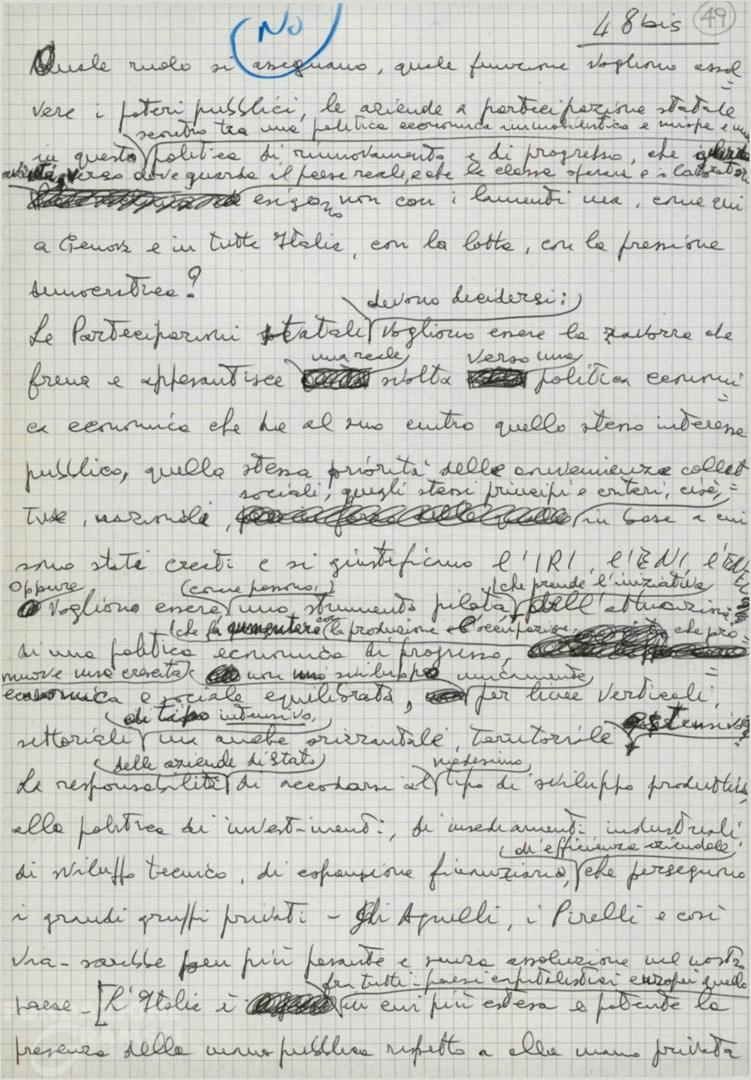 No
48 bis
49
Quale ruolo si assegnano, quale funzione vogliono assol=
vere i poteri pubblici, le aziende a partecipazione statale
scontro tra una politica economica immobilistica e miope e una
in questo politica di rinnovamento e di progresso, che
verso dove guarda il paese reale, e che la classe operaia e i lavoratori
esigono non con i lamenti ma, come qui
a Genova e in tutta Italia, con la lotta, con la pressione
democratica?
devono decidersi:
Le Partecipazioni statali vogliono essere la zavorra che
una reale verso una
frena e appesantisce svolta politica economi=
ca economica che ha al suo centro quello stesso interesse
pubblico, quella stessa priorità delle convenienze collet=
sociali, quegli stessi principi e criteri, cioè,
tive, nazionali, in base a cui
sono stati creati e si giustificano l'IRI, l'ENI, l'
oppure (come possono,) (che prende l'iniziativa
vogliono essere uno strumento pilota, dell'attuazione
(che fa aumentare la produzione e l'occupazione che pro=
di una politica economica di progresso,
muove una crescita non uno sviluppo unicamente
economica e sociale equilibrata, per linee verticali,
di tipo intensivo,
settoriali ma anche orizzontale, territoriale estensivo?
delle aziende di Stato medesimo
La responsabilità di accodarsi al tipo di sviluppo produttivo,
alla politica di investimenti, di insediamenti industriali
di efficienza aziendale,
di sviluppo tecnico, di espansione finanziaria, che perseguono
i grandi gruppi privati - gli Agnelli, i Pirelli e così
via - sarebbe ben più pesante e senza assoluzione nel nostro
fra tutti i paesi capitalistici europei quello
paese - [L'Italia è in cui più estesa e potente la
presenza della mano pubblica rispetto a alla mano privata